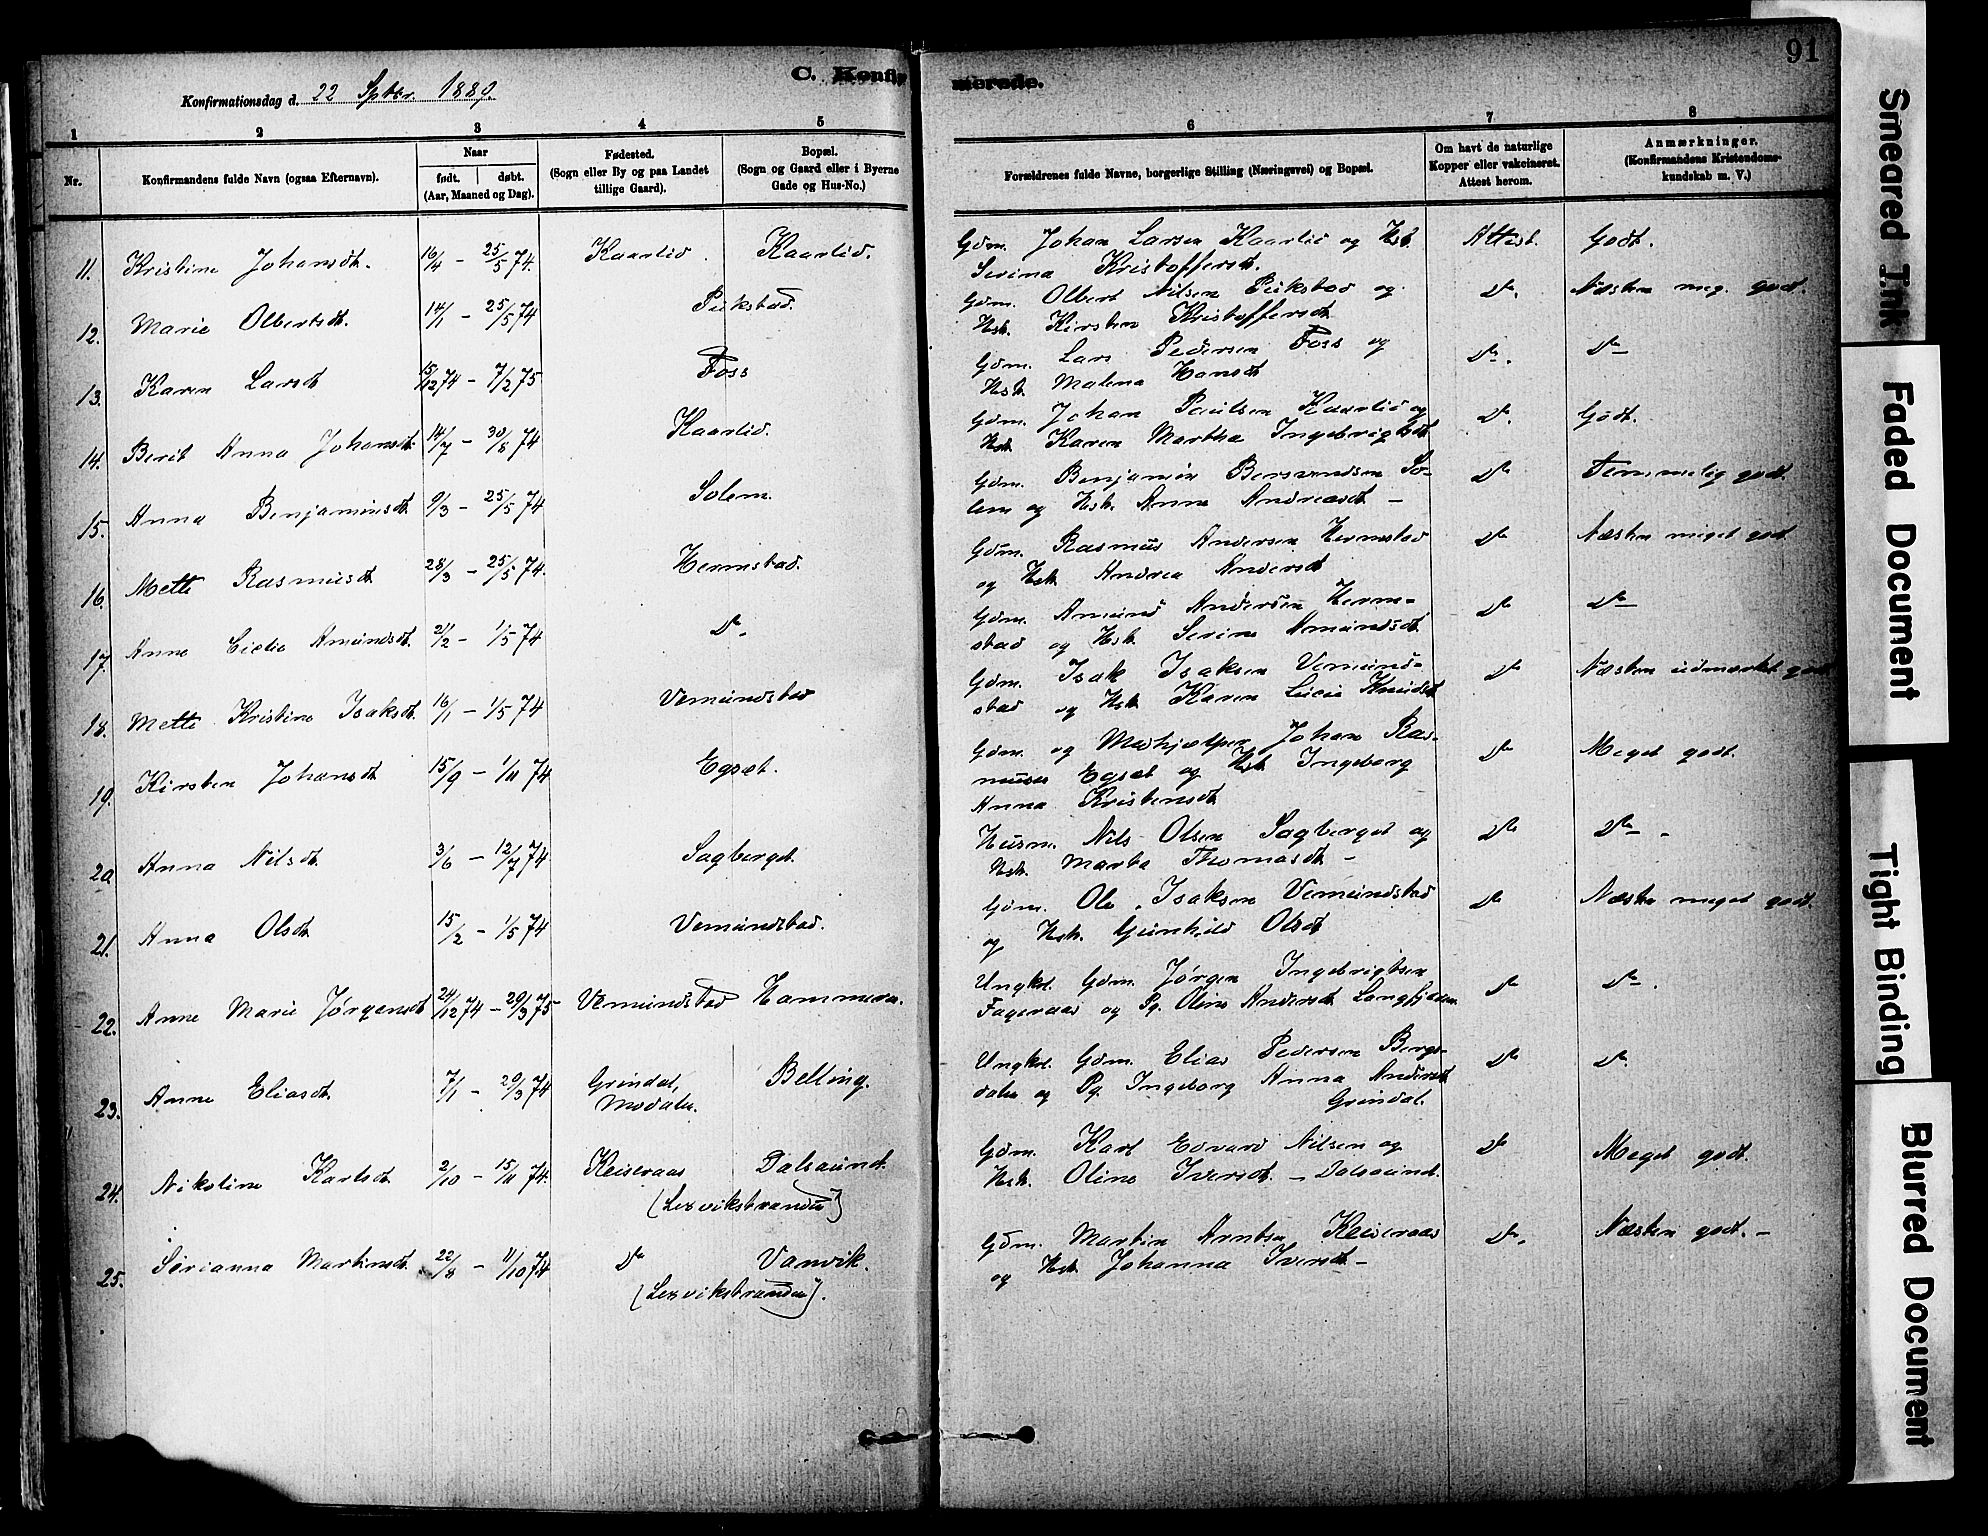 C. Konfirmerede.
91
Konfirmationsdag d. 22 Sptbr. 1889.
1 2 3 4 5 6 7 8
Nr. Konfirmandens fulde Navn (ogsaa Efternavn). Naar født. døbt. (Aar, Maaned og Dag). Fødested. (Sogn eller By og paa Landet tillige Gaard). Bopæl. (Sogn og Gaard eller i Byerne Gade og Hus-No.) Forældrenes fulde Navne, borgerlige Stilling (Næringsvei) og Bopæl. Om havt de naturlige Kopper eller vakcineret. Attest herom. Anmærkninger. (Konfirmandens Kristendomskundskab m. V.)
11. Kristine Johansdt. 16/4 - 25/5 74. Kaarlid. Kaarlid. Gdm. Johan Larsen Kaarlid og Hst. Attest. Godt.
Serina Kristoffersdt.
12. Marie Olbertsdt. 14/1 - 25/5 74 Pukstad. Gdm. Olbert Nilsen Pukstad og Do. Næsten meg. godt.
Hst. Kirsten Kristoffersdt
13. Karen Larsdt 15/12 74 - 7/2 75 Foss Gdm. Lars Pedersen Foss og Do. Do
Hst. Malena Hansdt
14. Berit Anna Johansdt. 14/7 - 30/8 74 Kaarlid. Gdm. Johan Paulsen Kaarlid og Do. Godt.
Hst. Karen Martha Ingebrigtsdt
15. Anna Benjaminsdt 9/3 - 25/5 74 Solem. Gdm. Benjamin Bersvendsen So- Do Temmelig godt.
lem og Hst. Anne Andreasdt -
16. Mette Rasmusdt 28/3 - 25/5 74. Hermstad. Gdm. Rasmus Andersen Hermstad Do Næsten meget godt
og Hst. Andrea Andersdt
17. Anne Amundsdt. 21/2 - 1/5 74 Do. Gdm. Amund Andersen Herm- Do Do
stad og Hst. Serine Amundsdt.
18. Mette Kristine Isaksdt. 16/1 - 1/5 74 Vemundstad Gdm. Isak Isaksen Vemund- Do Næsten udmærket godt
stad og Hst. Karen Lucie Knudsdt
19. Kirsten Johansdt 15/9 - 1/11 74 Egset. Gdm. og Medhjælper Johan Ras- Do Meget godt.
musen Egset og Hst. Ingeborg
Anna Kristensdt
20 Anna Nilsdt 3/6 - 12/7 74 Sagberget. Husm. Nils Olsen Sagberget og Do Do.
Hst. Marta Thomasdt -
21. Anna Olsdt 15/2 - 1/5 74 Vemundstad. Gdm. Ole Isaksen Vemundstad Do Næsten meget godt.
og Hst. Gunhild Olsdt
22. Anne Marie Jørgensdt 24/12 74 - 29/3 75 Vemundstad Hammeren. Ungkl. Gdm. Jørgen Ingebrigtsen Do Do.
Fageraas og Pg. Oline Andersdt
23. Anne Eliasdt 7/1 - 29/3 74 Grindal, Belling. Ungkl. Gdm. Elias Pedersen Bergs- Do Do.
Modalen. dalen og Pg. Ingeborg Anna Andersdt
Grindal.
24. Nikoline Karlsdt 2/10 - 15/11 74. Keiseraas Dalsaunet. Gdm. Karl Edvard Nilsen og Do Meget godt.
(Lexviksstranden) Hst. Oline Iversdt. - Dalsaunet.
25. Sørianna Martinsdt. 22/8 - 11/10 74 Do Vanvik. Gdm. Martin Arntsen Keiseraas Do. Næsten godt. -
(Lexviksstranden). og Hst. Johanna Iversdt -
Smeared Ink
Faded Document
Tight Binding
Blurred Document